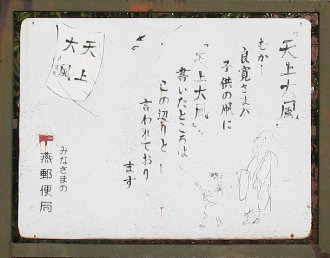 「天上大風」
むかし
良寛さまが
子供の凧に
「天上大風」
書いたところは
この辺りと
言われており
ます
天上
大風
みなさまの
燕郵便局